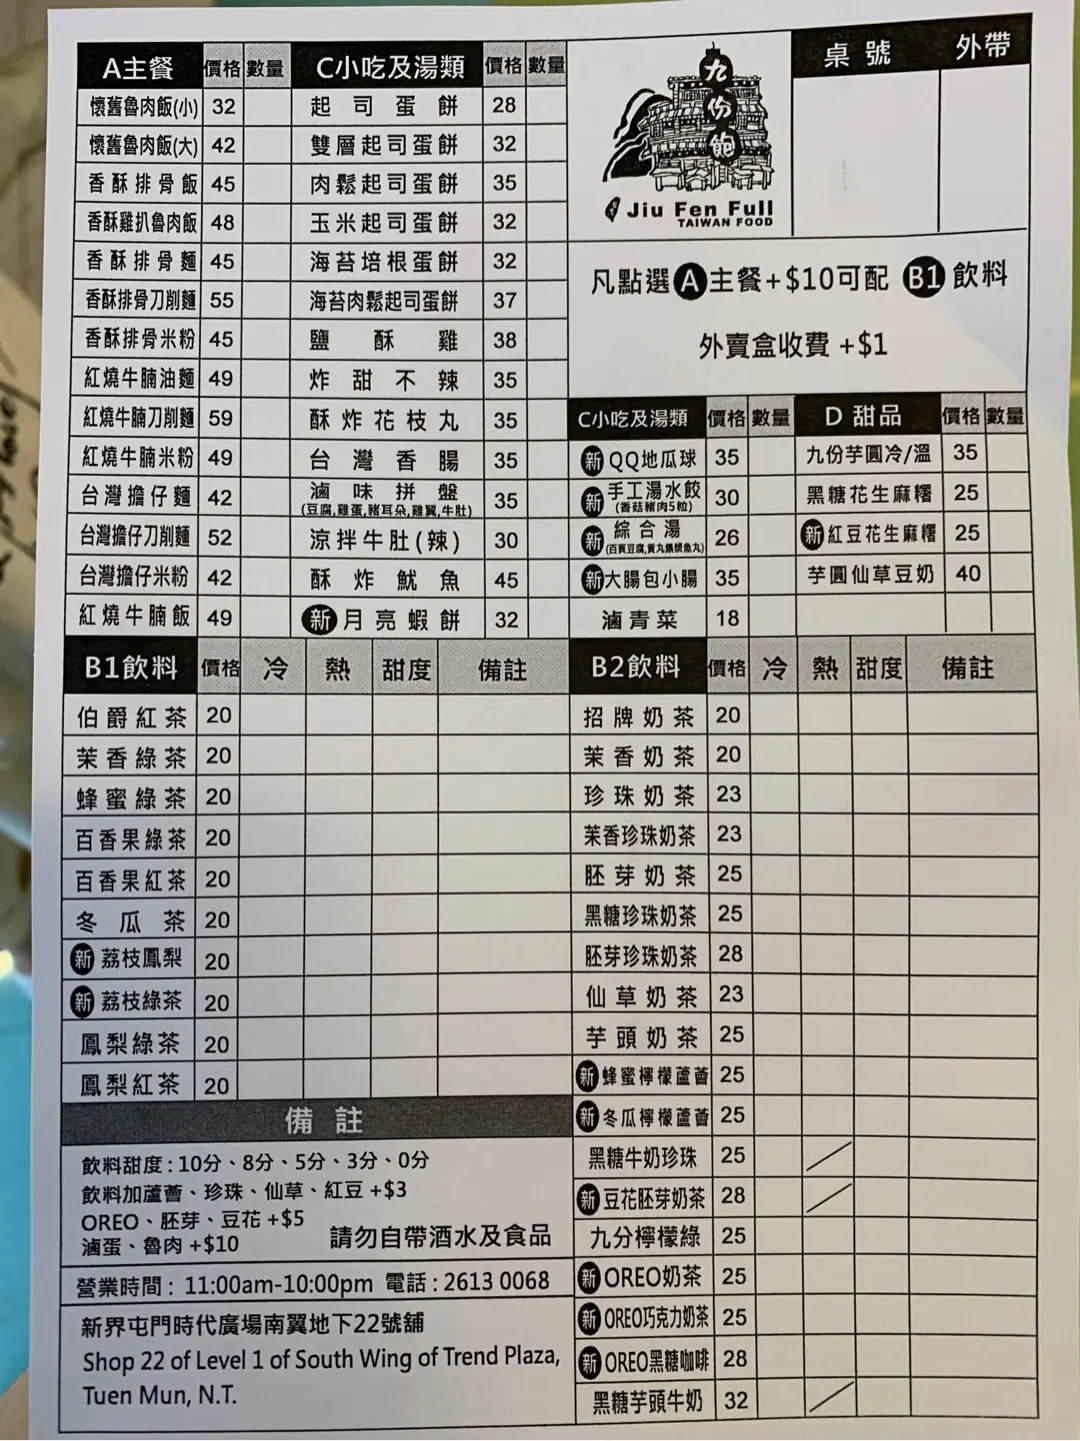 A主餐 價格 數量
懷舊魯肉飯(小) 32
懷舊魯肉飯(大) 42
香酥排骨飯 45
香酥雞扒魯肉飯 48
香酥排骨麵 45
香酥排骨刀削麵 55
香酥排骨米粉 45
紅燒牛腩油麵 49
紅燒牛腩刀削麵 59
紅燒牛腩米粉 49
台灣擔仔麵 42
台灣擔仔刀削麵 52
台灣擔仔米粉 42
紅燒牛腩飯 49
C小吃及湯類 價格 數量
起司蛋餅 28
雙層起司蛋餅 32
肉鬆起司蛋餅 35
玉米起司蛋餅 32
海苔培根蛋餅 32
海苔肉鬆起司蛋餅 37
鹽酥雞 38
炸甜不辣 35
酥炸花枝丸 35
台灣香腸 35
滷味拼盤 35
(豆腐,雞蛋,豬耳朵,雞翼,牛肚)
涼拌牛肚(辣) 30
酥炸魷魚 45
新 月亮蝦餅 32
九份飽
Jiu Fen Full
TAIWAN FOOD
桌號 外帶
凡點選A主餐+$10可配 B1飲料
外賣盒收費+$1
C小吃及湯類 價格 數量
新 QQ地瓜球 35
新 手工湯水餃 30
(香菇豬肉5粒)
新 綜合湯 26
(百頁豆腐,貢丸爆漿魚丸)
新 大腸包小腸 35
滷青菜 18
D 甜品 價格 數量
九份芋圓冷/溫 35
黑糖花生麻糬 25
新 紅豆花生麻糬 25
芋圓仙草豆奶 40
B1飲料 價格 冷 熱 甜度 備註
伯爵紅茶 20
茉香綠茶 20
蜂蜜綠茶 20
百香果綠茶 20
百香果紅茶 20
冬瓜茶 20
新 荔枝鳳梨 20
新 荔枝綠茶 20
鳳梨綠茶 20
鳳梨紅茶 20
備註
飲料甜度:10分、8分、5分、3分、0分
飲料加蘆薈、珍珠、仙草、紅豆+$3
OREO、胚芽、豆花+$5
滷蛋、魯肉+$10 請勿自帶酒水及食品
營業時間: 11:00am-10:00pm 電話:2613 0068
新界屯門時代廣場南翼地下22號舖
Shop 22 of Level 1 of South Wing of Trend Plaza,
Tuen Mun, N.T.
B2飲料 價格 冷 熱 甜度 備註
招牌奶茶 20
茉香奶茶 20
珍珠奶茶 23
茉香珍珠奶茶 23
胚芽奶茶 25
黑糖珍珠奶茶 25
胚芽珍珠奶茶 28
仙草奶茶 23
芋頭奶茶 25
新 蜂蜜檸檬蘆薈 25
新 冬瓜檸檬蘆薈 25
黑糖牛奶珍珠 25
新 豆花胚芽奶茶 28
九分檸檬綠 25
新 OREO奶茶 25
新 OREO巧克力奶茶 25
新 OREO黑糖咖啡 28
黑糖芋頭牛奶 32